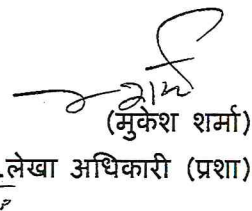 (मुकेश शर्मा)
.लेखा अधिकारी (प्रशा)